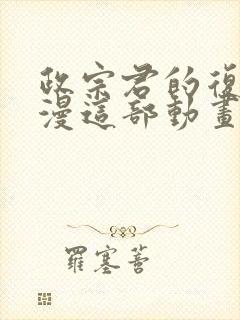 政宗君的復
漫這部動畫
羅塞菩